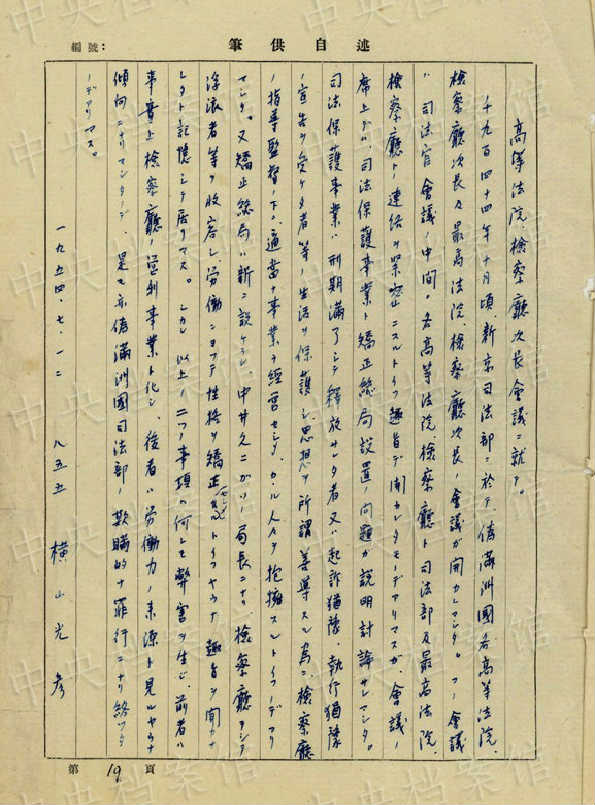 編號:
述自供筆
高等法院、検察廳次長会議ニ就テ。
千九百四十四年十月頃、新京司法部ニ於テ、偽満洲國各高等法院、
検察廳次長及最高法院、検察廳次長ノ会議ガ開カレマシタ。コノ会議
ハ司法官会議ノ中間ニ、各高等法院、検察廳ト司法部及最高法院、
検察廳トノ連絡ヲ緊密ニスルトイフ趣旨デ開カレタモノデアリマスガ会議ノ
席上デハ、司法保護事業ト矯正総局設置ノ問題ガ説明討論サレマシタ。
司法保護事業ハ刑期満了シテ釋放サレタ者又ハ起訴猶豫、執行猶豫
ノ宣告ヲ受ケタ者等ノ生活ヲ保護シ、思想ヲ所謂善導スル為ニ、検察廳
ノ指導監督ノ下ニ、適当ナ事業ヲ経営セシメ、カヽル人々ヲ抱擁スルトイフノデアリ
マシタ。又矯正総局ハ新ニ設ケラレ中井久二ガソノ局長ニナリ、検察廳ヲシテ
浮浪者等ヲ收容シ労働ニヨツテ性格ヲ矯正セシメルトイフヤウナ趣旨ヲ聞カサ
レタト記憶シテ居リマス。シカシ以上ノ二ツノ事項ハ何レモ弊害ヲ生ジ、前者ハ
事実上検察廳ノ営利事業ト化シ、後者ハ労働力ノ来源ト見ルヤウナ
傾向ニナリマシタノデ、是モ亦偽満洲國司法部ノ欺瞞的ナ罪行ニナリ終ツタ
ノデアリマス。
一九五四、七、一二　八五五　横山光彦
第 19 頁
中央档案馆